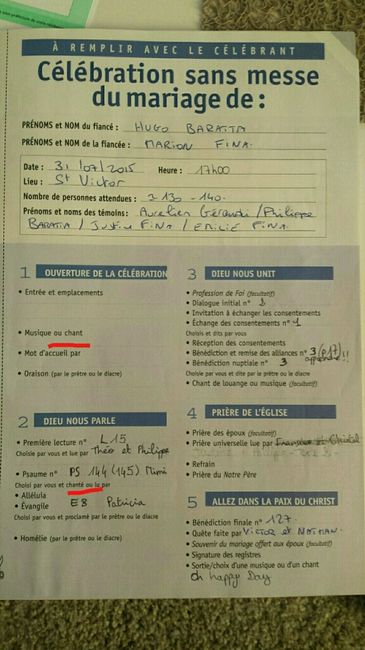 À REMPLIR AVEC LE CÉLÉBRANT
Célébration sans messe
du mariage de :
PRÉNOMS et NOM du fiancé : HUGO BARATTA
PRÉNOMS et NOM de la fiancée : MARION FINA.
Date : 31/07/2015 Heure : 17h00
Lieu : St Victor
Nombre de personnes attendues : 130 - 140.
Prénoms et noms des témoins : Aurelien / Philippe
BARATTA / Justine FINA / EMILIE FINA.
1 OUVERTURE DE LA CÉLÉBRATION
• Entrée et emplacements
• Musique ou chant
• Mot d'accueil par
• Oraison (par le prêtre ou le diacre)
2 DIEU NOUS PARLE
• Première lecture n° L15
Choisie par vous et lue par Théo et Philippe
• Psaume n° PS 144 (145) Mimi
Choisi par vous et chanté ou lu par
• Alléluia
• Évangile E8 Patricia
Choisi par vous et proclamé par le prêtre ou le diacre
• Homélie (par le prêtre ou le diacre)
3 DIEU NOUS UNIT
• Profession de Foi (facultatif)
• Dialogue initial n°
• Invitation à échanger les consentements
• Échange des consentements n° 1
Choisis et dits par vous
• Réception des consentements
• Bénédiction et remise des alliances n° 3 (p17)
• Bénédiction nuptiale n° 3 apprendre !!
Choisie par vous et dite par le prêtre ou le diacre
• Chant de louange ou musique (facultatif)
4 PRIÈRE DE L'ÉGLISE
• Prière des époux (facultatif)
• Prière universelle lue par
• Refrain
• Prière du Notre Père
5 ALLEZ DANS LA PAIX DU CHRIST
• Bénédiction finale n° 127.
• Quête faite par VICTOR et NATHAN.
• Souvenir du mariage offert aux époux (facultatif)
• Signature des registres
• Sortie/choix d'une musique ou d'un chant
Oh happy Day